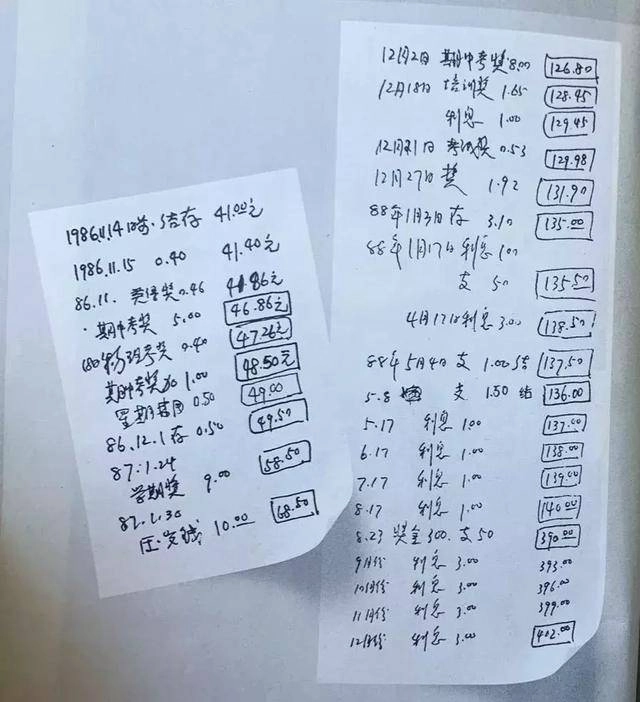 1986.11.14日前.结存 41.00元
1986.11.15 0.40 41.40元
86.11. 英语奖0.46 41.86元
期中考奖 5.00 46.86元
考奖 0.40 47.26元
期中考奖加 1.00 48.50元
星期 0.50 49.00
86.12.1存 0.50 49.50
87.1.24
学期奖 9.00 58.50
87.1.30
压岁钱 10.00 68.50
12月2日 期中考奖8.00 126.80
12月18日 培训奖 1.65 128.45
利息 1.00 129.45
12月21日 考试奖 0.53 129.98
12月27日 奖 1.92 131.90
88年1月3日存 3.10 135.00
88年1月17日利息 1.00
支 50 135.50
4月17日利息 3.00 138.50
88年5月4日 支 1.00 结 137.50
5.8 支 1.50 结 136.00
5.17 利息 1.00 137.00
6.17 利息 1.00 138.00
7.17 利息 1.00 139.00
8.17 利息 1.00 140.00
8.23 奖金300. 支50 390.00
9月份 利息 3.00 393.00
10月份 利息 3.00 396.00
11月份 利息 3.00 399.00
12月份 利息 3.00 402.00